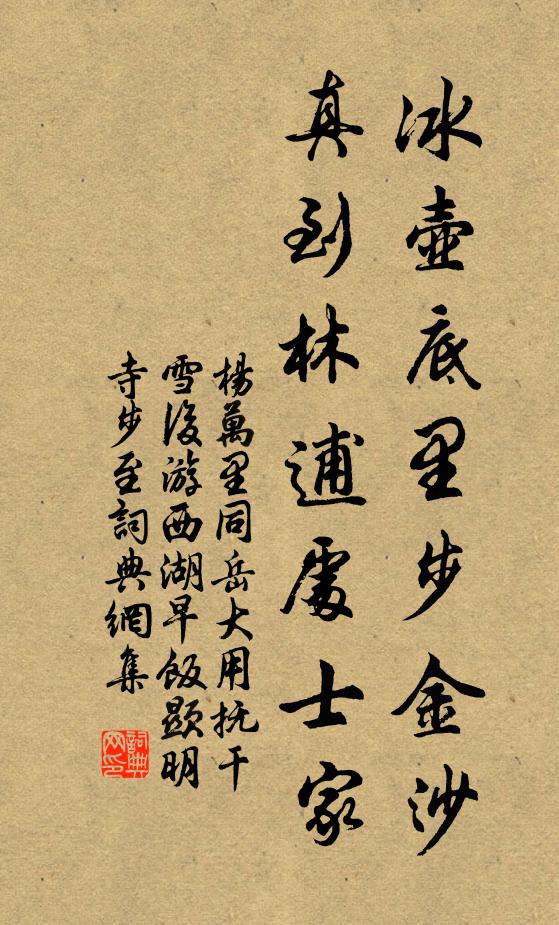 冰壺底里步金沙
真到林逋處士家
楊萬里同岳大用撫干
雪後游西湖早飯顯明
寺步至詞典網集
詞典
网印